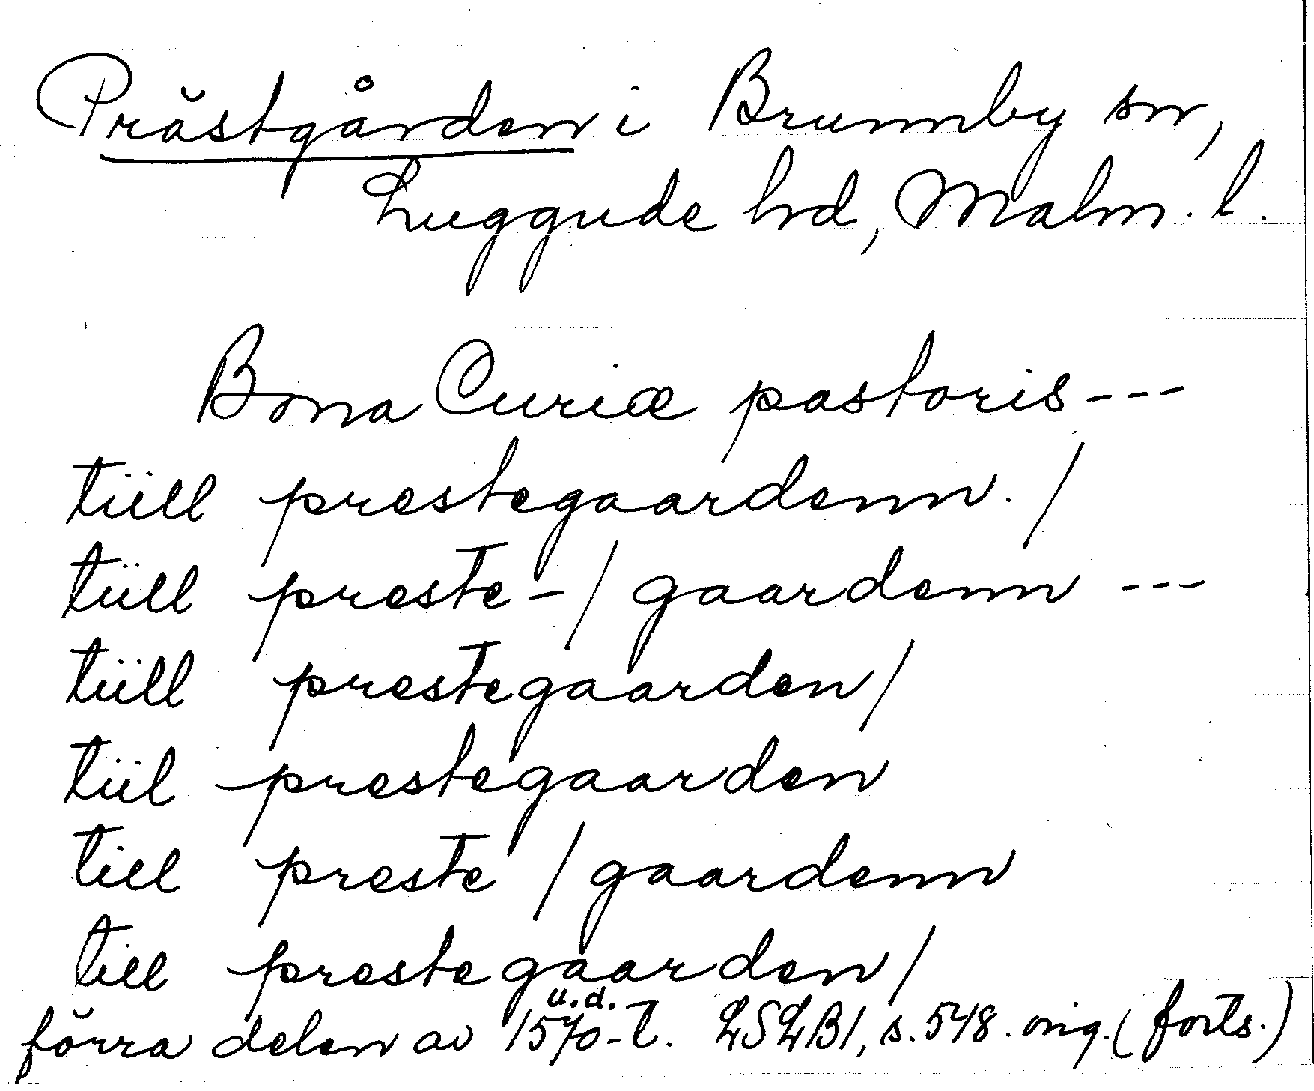 Prästgården i Brunnby sn,
Luggude hd, Malm. l.
Bona Curiæ pastoris ---
tiill prestegaardenn. /
tiill preste-/gaardenn ---
tiill prestegaarden/
tiil prestegaarden
till preste /gaardenn
till prestegaarden/
u.d.
förra delen av 1570-t. LSLB1, s. 548. orig. (forts.)